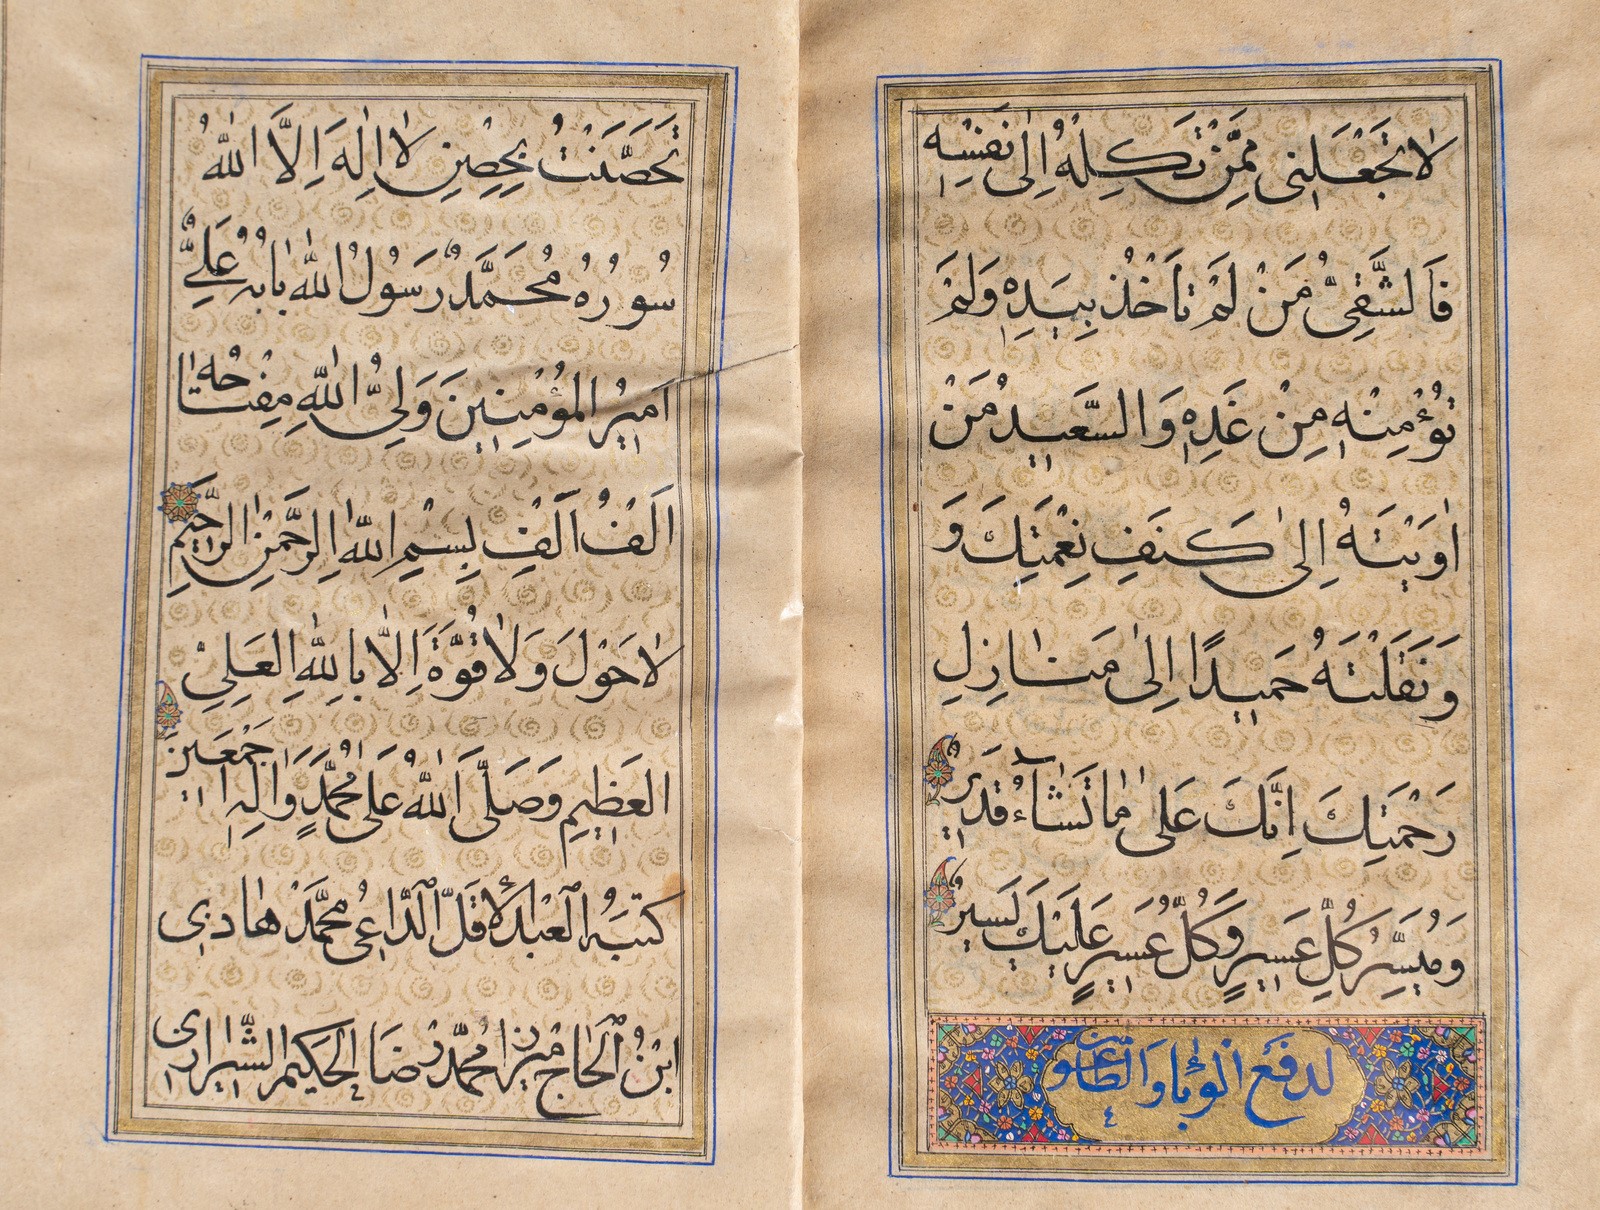 لا تَجْعَلَنى مِمَّنْ تَكِلُهُ اِلى نَفْسِهِ
فَالشَّقِىُّ مَنْ لَمْ تَاْخُذْ بِيَدِهِ وَلَمْ
تُؤْمِنْهُ مِنْ غَدِهِ وَالسَّعيدُ مَنْ
اوَيْتَهُ اِلى كَنَفِ نِعْمَتِكَ وَ
وَنَقَلْتَهُ حَميدًا اِلى مَنازِلِ
رَحْمَتِكَ اِنَّكَ عَلى ما تَشآءُ قَديرٌ
وَمُيَسِّرُ كُلِّ عَسيرٍ وَكُلُّ عَسيرٍ عَلَيْكَ يَسيرٌ
لدفع الوبا والطاعون
تَحَصَّنْتُ بِحِصْنِ لا اِلهَ اِلَّا اللهُ
سُورُهُ مُحَمَّدٌ رَسُولُ اللهِ بابُهُ عَلِىٌّ
اَميرُ المُؤْمِنينَ وَلِىُّ اللهِ مِفْتاحُهُ
اَلْفُ اَلْفِ بِسْمِ اللهِ الرَّحْمنِ الرَّحيمِ
لا حَوْلَ وَلا قُوَّةَ اِلّا بِاللهِ العَلِىِّ
العَظيمِ وَصَلَّى اللهُ عَلى مُحَمَّدٍ وَالِهِ اَجْمَعينَ
كتبه العبد الاقل الداعى محمد هادى
ابن الحاج ميرزا محمد رضا الحكيم الشيرازى